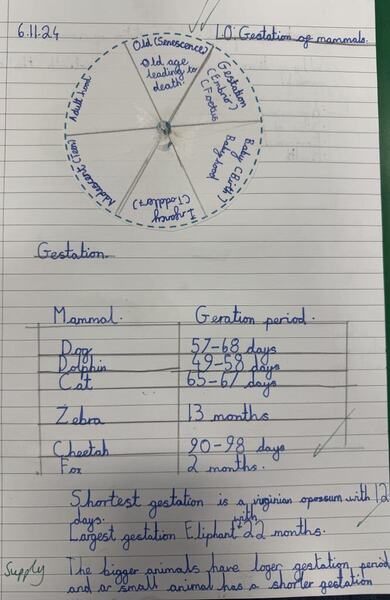 6.11.24
L.O: Gestation of mammals.
Old (Senescence)
Old age
leading to
death.
Gestation
(Embrio)
(Foetus
Baby (Birth)
Babyhood
Infancy
(Toddler)
Adolescent (Teen)
Adulthood
Gestation.
Mammal. Geration period.
Dog 57-68 days
Dolphin 49-58 days
Cat 65-67 days
Zebra 13 months
Cheetah 90-98 days
Fox 2 months.
Shortest gestation is a virginian opossum with 12
days.
with
Largest gestation Eliphant 22 months.
Supply
The bigger animals have loger gestation period
and a small animal has a shorter gestation